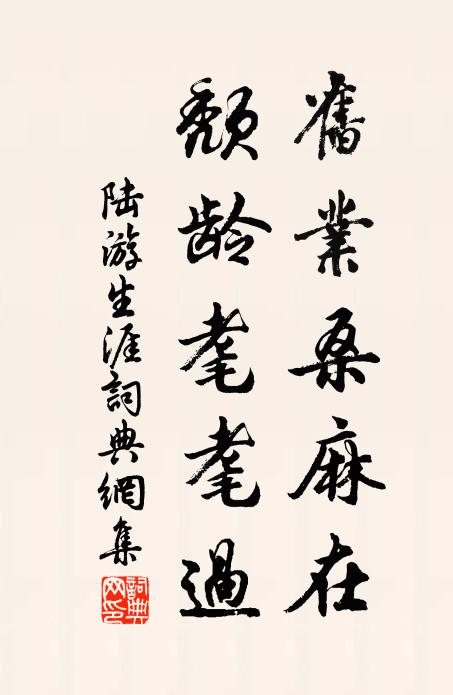 舊業桑麻在
頹龄耄耄過
陆游生涯詞典網集
詞典网印